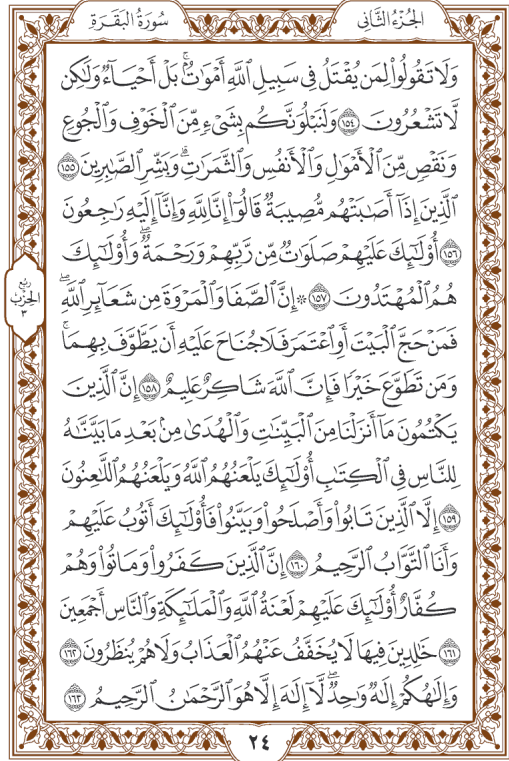 الجُزْءُ الثَّانِي
سُورَةُ البَقَرَةِ
وَلَا تَقُولُواْ لِمَن يُقْتَلُ فِي سَبِيلِ ٱللَّهِ أَمْوَٰتُۢۚ بَلْ أَحْيَآءٞ وَلَٰكِن
لَّا تَشْعُرُونَ ١٥٤ وَلَنَبْلُوَنَّكُم بِشَيۡءٖ مِّنَ ٱلْخَوْفِ وَٱلْجُوعِ
وَنَقْصٖ مِّنَ ٱلْأَمْوَٰلِ وَٱلْأَنفُسِ وَٱلثَّمَرَٰتِۗ وَبَشِّرِ ٱلصَّٰبِرِينَ ١٥٥
ٱلَّذِينَ إِذَآ أَصَٰبَتْهُم مُّصِيبَةٞ قَالُوٓاْ إِنَّا لِلَّهِ وَإِنَّآ إِلَيْهِ رَٰجِعُونَ
١٥٦ أُوْلَٰٓئِكَ عَلَيْهِمْ صَلَوَٰتٞ مِّن رَّبِّهِمْ وَرَحْمَةٞۖ وَأُوْلَٰٓئِكَ
هُمُ ٱلْمُهْتَدُونَ ١٥٧ ۞ إِنَّ ٱلصَّفَا وَٱلْمَرْوَةَ مِن شَعَآئِرِ ٱللَّهِۖ
فَمَنْ حَجَّ ٱلْبَيْتَ أَوِ ٱعْتَمَرَ فَلَا جُنَاحَ عَلَيْهِ أَن يَطَّوَّفَ بِهِمَاۚ
وَمَن تَطَوَّعَ خَيْرٗا فَإِنَّ ٱللَّهَ شَاكِرٌ عَلِيمٌ ١٥٨ إِنَّ ٱلَّذِينَ
يَكْتُمُونَ مَآ أَنزَلْنَا مِنَ ٱلْبَيِّنَٰتِ وَٱلْهُدَىٰ مِنۢ بَعْدِ مَا بَيَّنَّٰهُ
لِلنَّاسِ فِي ٱلْكِتَٰبِ أُوْلَٰٓئِكَ يَلْعَنُهُمُ ٱللَّهُ وَيَلْعَنُهُمُ ٱللَّٰعِنُونَ
١٥٩ إِلَّا ٱلَّذِينَ تَابُواْ وَأَصْلَحُواْ وَبَيَّنُواْ فَأُوْلَٰٓئِكَ أَتُوبُ عَلَيْهِمْ
وَأَنَا ٱلتَّوَّابُ ٱلرَّحِيمُ ١٦٠ إِنَّ ٱلَّذِينَ كَفَرُواْ وَمَاتُواْ وَهُمْ
كُفَّارٌ أُوْلَٰٓئِكَ عَلَيْهِمْ لَعْنَةُ ٱللَّهِ وَٱلْمَلَٰٓئِكَةِ وَٱلنَّاسِ أَجْمَعِينَ
١٦١ خَٰلِدِينَ فِيهَا لَا يُخَفَّفُ عَنْهُمُ ٱلْعَذَابُ وَلَا هُمْ يُنظَرُونَ ١٦٢
وَإِلَٰهُكُمْ إِلَٰهٞ وَٰحِدٞۖ لَّآ إِلَٰهَ إِلَّا هُوَ ٱلرَّحْمَٰنُ ٱلرَّحِيمُ ١٦٣
ربع
الحزب
٣
٢٤